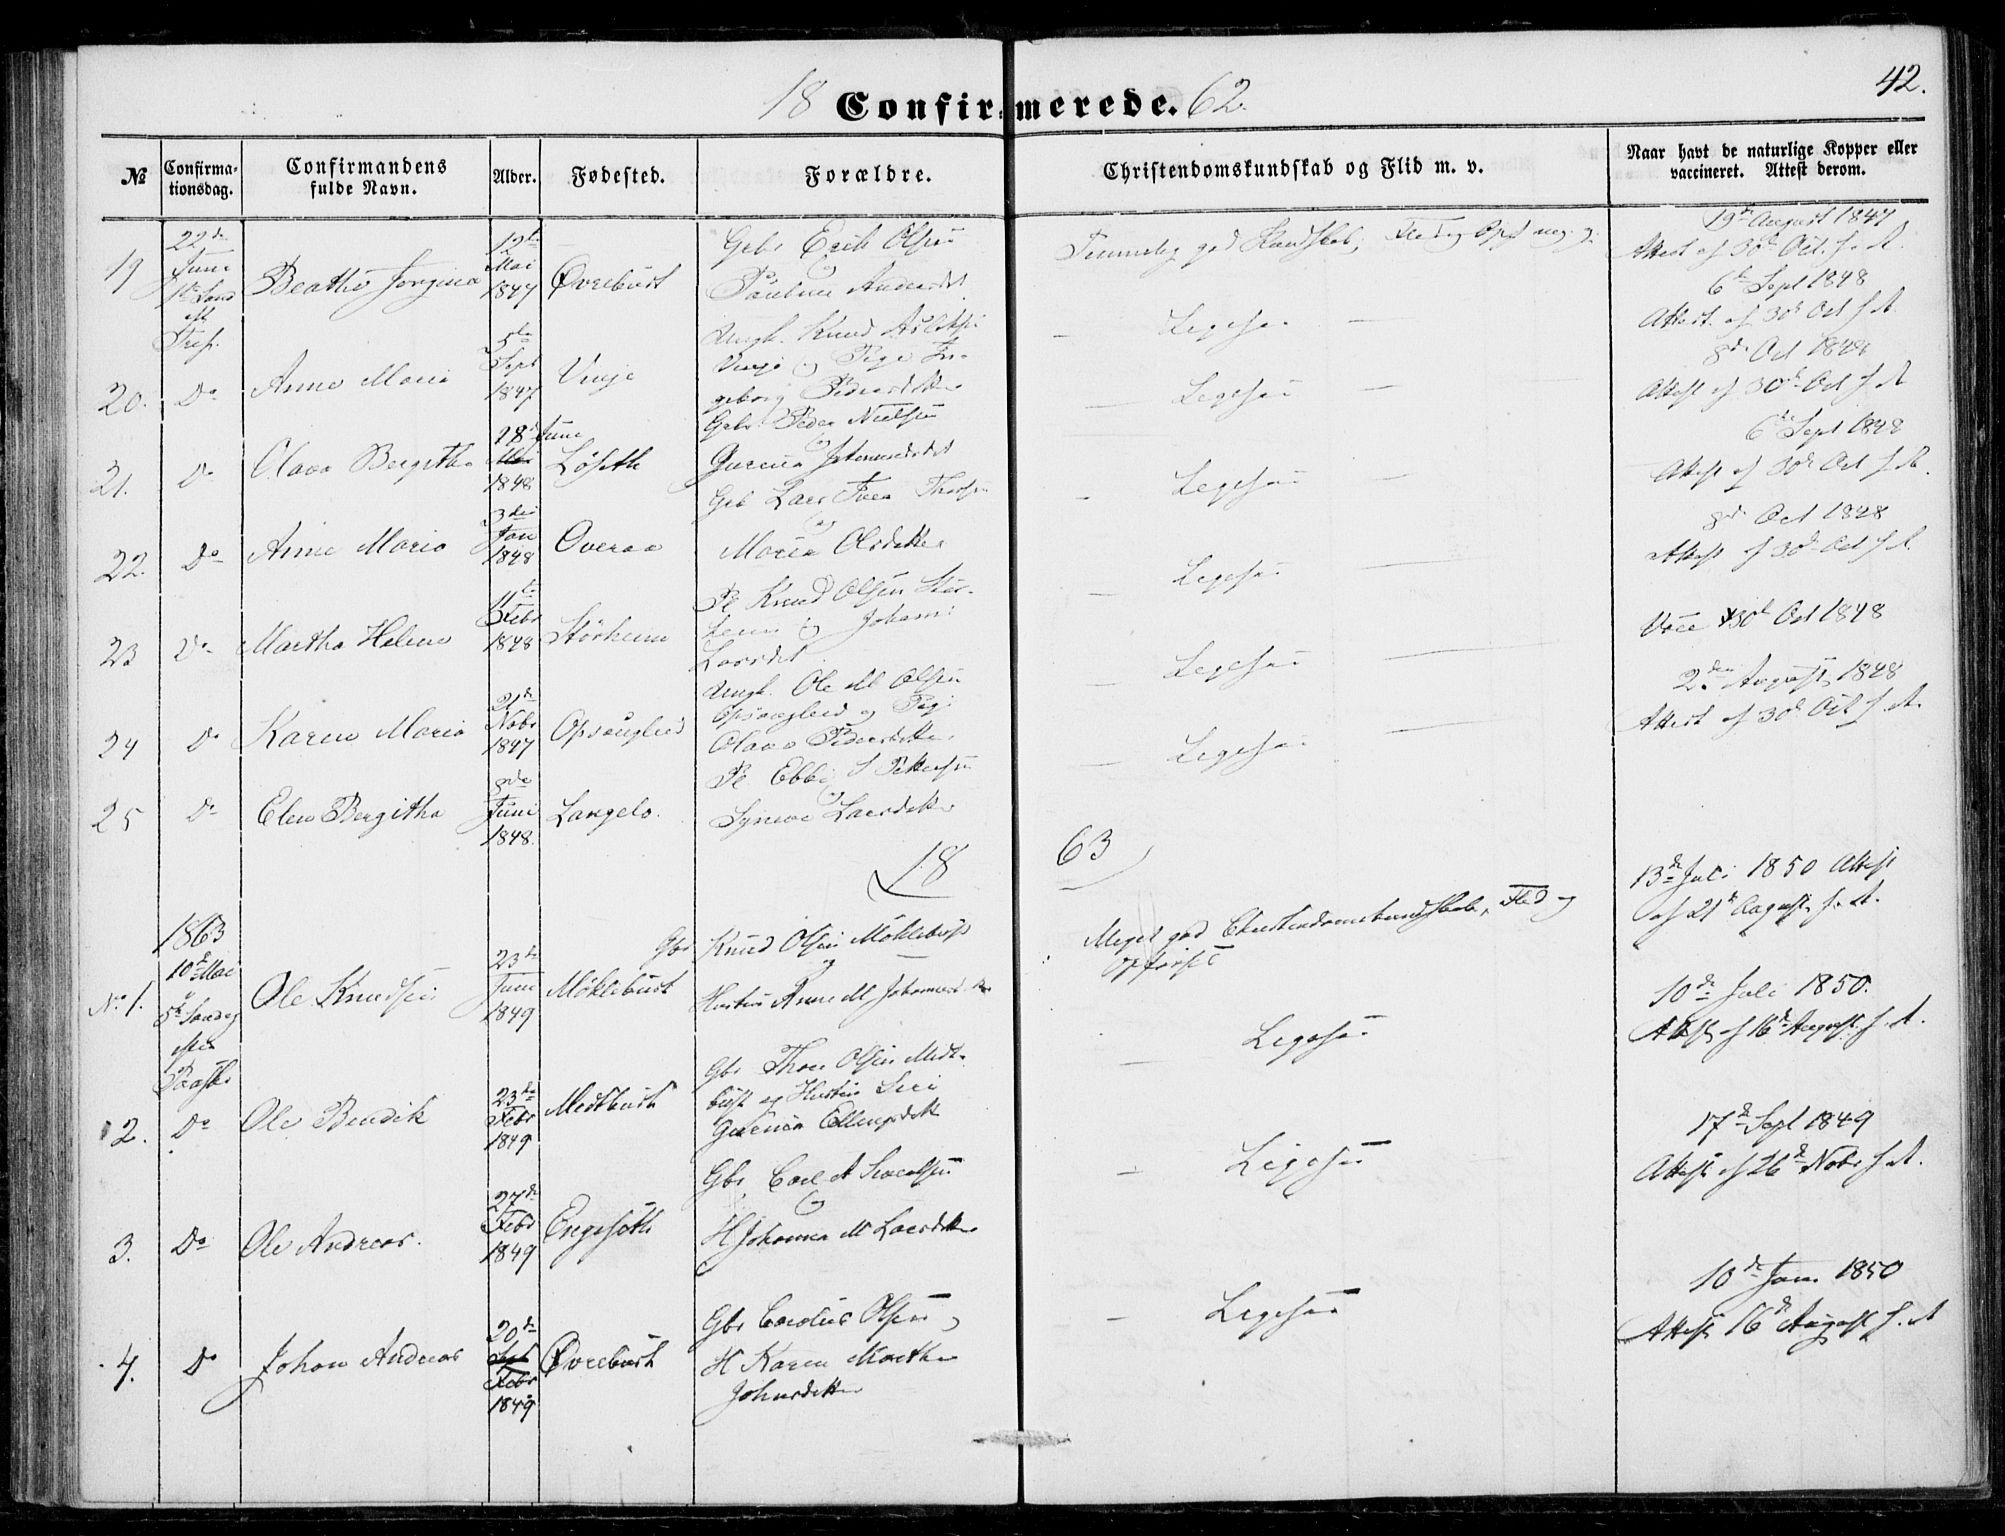 18 Confirmerede. 62
42.
№
Confirmationsdag.
Confirmandens fulde Navn.
Alder.
Fødested.
Forældre.
Christendomskundskab og Flid m. v.
Naar havt de naturlige Kopper eller vaccineret. Attest derom.
19
22de
Juni
1ste Sønd
eft
Tref.
Beathe Jorgina
12te
Mai
1847
Øvrebust
Gbr Erik Olsen
og
Pauline Andersdt
Temmelig god Kundskab, Flid og Opf meg. g.
19de August 1847
Attest af 30te Oct. s. A.
20.
Do
Anne Maria
5te
Sept
1847
Vinje
Ungk. Knud
Vinje og Pige In-
geborg Pedersdatter
— Ligesaa —
6te Sept 1848
Attest af 30te Oct s A.
21.
Do
Olava Bergitha
28de Juni
Mai
1848
Løseth
Gbr Peder Nielsen
og
Gurina
— Ligesaa —
8de Oct 1848
Attest af 30te Oct s A
22.
Do
Anne Maria
3die
Jan
1848
Overaa
Gbr Lars Iver Thorsen
og
Maria Olsdatter
— Ligesaa —
6te Sept 1848
Attest af 30te Oct s A.
23
Do
Martha Helene
11te
Febr
1848
Storheim
Pl Knud Olsen Stor-
heim og Johanne
Larsdt
— Ligesaa —
8de Oct 1848
Attest af 30te Oct s A.
24
Do
Karen Maria
21de
Nobr
1847
Opsanglied
Ungk. Ole M Olsen
Opsanglied og Pige
Olava Pedersdatter
— Ligesaa —
Vacc 30te Oct 1848
25
Do
Elen Bergitha
8de
Juni
1848.
Langelo.
Pl Ebbe S Pettersen
og
Synneve Larsdatter
— Ligesaa —
2den August 1848
Attest af 30te Oct s. A.
18 63
1863
10de Mai
5te Søndag
efter
Paaske
No 1.
Ole Knudsen
23de
Juni
1849
Møklebust
Gbr Knud Olsen Møklebust
og
Hustru Anne M Johannesdatter
Meget god Christendomskundskab, Flid og
Opførsel
13de Juli 1850 Attest
af 21de August s. A.
2.
Do
Ole Bendik
23de
Febr
1849
Medtbust
Gbr Thor Olsen Medt-
bust og Hustru
Gurina Ellingsdatter
— Ligesaa
10de Juli 1850.
Attest af 16de August s. A.
3.
Do
Ole Andreas.
27de
Febr
1849
Engeseth
Gbr Carl A
og
H Johanna M Larsdatter
— Ligesaa
17de Sept 1849
Attest af 26de Nobr s A.
4.
Do
Johan Andreas
20de
Sept
Febr
1849
Øvrebust
Gbr Carolus Olsen og
H Karen Marthe
Johnsdatter
— Ligesaa
10de Jan. 1850
Attest 16de August s. A